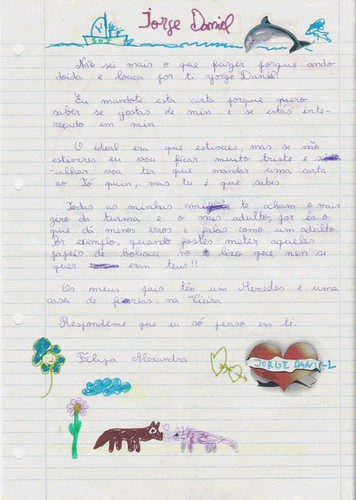 Jorge Daniel
Não sei mais o que fazer porque ando
doida e louca por ti Jorge Daniel.
Eu mandote esta carta porque quero
saber se gostas de min e se estás inte-
reçado em min
O ideal era que estivoces, mas se não
estiveres eu vou ficar muito triste e
calhar vou ter que mandar uma carta
ao Tó quin, mas tu é que sabes.
Todas as minhas amigas te acham o mis
giro da turma e o mais adulto, por és o
que dá menos erros e falas como um adulto.
Por exemplo, quando fostes meter aqueles
papeis de bolicau no lixo que nen se
quer eram teus!!
Os meus pais tên um Mercedes e uma
casa de férias, na Vieira
Respondeme que eu só penso em ti.
Filipa Alexandra
JORGE DANIEL